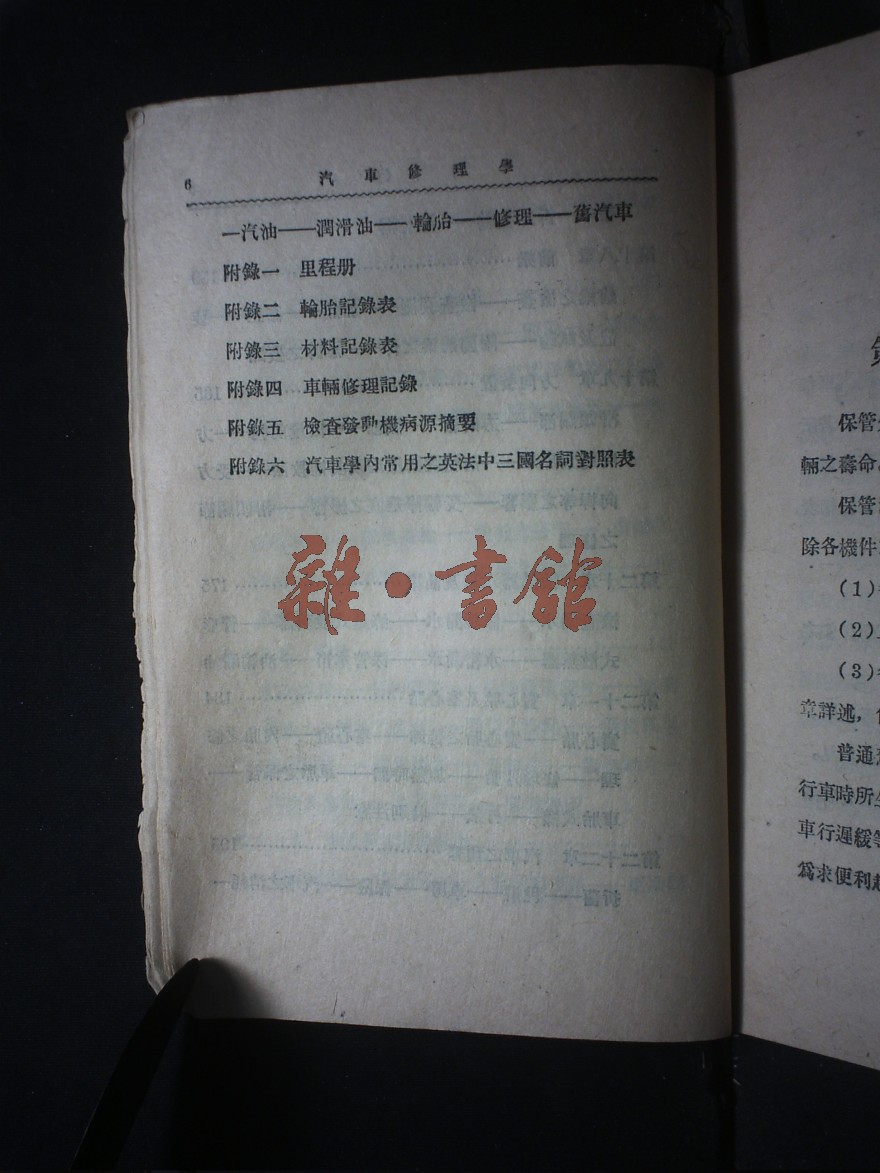 6 汽車修理學
一汽油——潤滑油——輪胎——修理——舊汽車
附錄一 里程册
附錄二 輪胎記錄表
附錄三 材料記錄表
附錄四 車輛修理記錄
附錄五 檢查發動機病源摘要
附錄六 汽車學內常用之英法中三國名詞對照表
雜·書館
保管
輛之壽命
保管
除各機件
(1)
(2)
(3)
章詳述,
普通
行車時所
車行遲緩
爲求便利